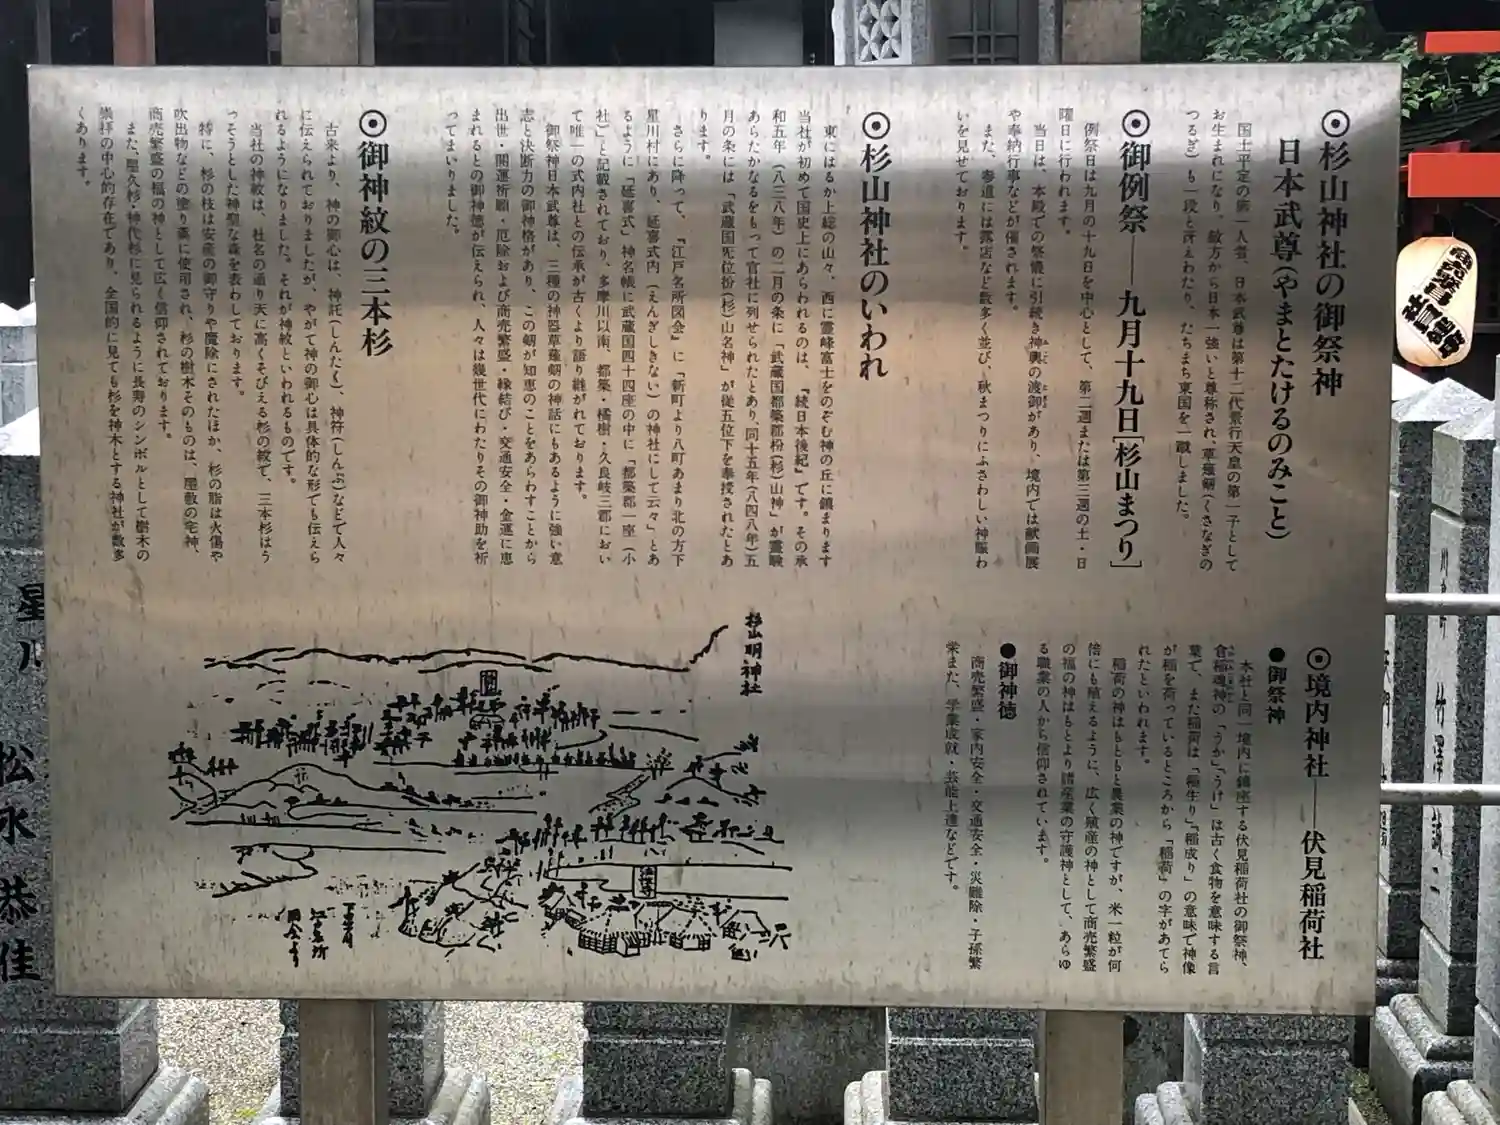 ◉杉山神社の御祭神
日本武尊(やまとたけるのみこと)
国土平定の第一人者、日本武尊は第十二代景行天皇の第一子として
お生まれになり、敵方から日本一強いと尊称され、草薙剣(くさなぎの
つるぎ)も一段と冴えわたり、たちまち東国を一蹴しました。
◉御例祭──九月十九日[杉山まつり]
例祭日は九月の十九日を中心として、第二週または第三週の土・日
曜日に行われます。
当日は、本殿での祭儀に引続き神輿の渡御があり、境内では献画展
や奉納行事などが催されます。
また、参道には露店など数多く並び、秋まつりにふさわしい神賑わ
いを見せております。
◉杉山神社のいわれ
東にはるか上総の山々、西に霊峰富士をのぞむ神の丘に鎮まります
当社が初めて国史上にあらわれるのは、「続日本後紀」です。その承
和五年(八三八年)の二月の条に「武蔵国都築郡枌(杉)山神」が霊験
あらたかなるをもって官社に列せられたとあり、同十五年(八四八年)五
月の条には「武蔵国无位枌(杉)山名神」が従五位下を奉授されたとあ
ります。
さらに降って、「江戸名所図会」に「新町より八町あまり北の方下
星川村にあり、延喜式内(えんぎしきない)の神社にして云々」とあ
るように「延喜式」神名帳に武蔵国四十四座の中に「都築郡一座(小
社)」と記載されており、多摩川以南、都築・橘樹・久良岐三郡におい
て唯一の式内社との伝承が古くより語り継がれております。
御祭神日本武尊は、三種の神器草薙剣の神話にもあるように強い意
志と決断力の御神格があり、この剣が知恵のことをあらわすことから
出世・開運祈願・厄除および商売繁盛・縁結び・交通安全・金運に恵
まれるとの御神徳が伝えられ、人々は幾世代にわたりその御神助を祈
ってまいりました。
◉御神紋の三本杉
古来より、神の御心は、神託(しんたく)、神符(しんぷ)などで人々
に伝えられておりましたが、やがて神の御心は具体的な形でも伝えら
れるようになりました。それが神紋といわれるものです。
当社の神紋は、社名の通り天に高くそびえる杉の紋で、三本杉はう
っそうとした神聖な森を表わしております。
特に、杉の枝は安産の御守りや魔除にされたほか、杉の脂は火傷や
吹出物などの塗り薬に使用され、杉の樹木そのものは、屋敷の宅神、
商売繁盛の福の神として広く信仰されております。
また、屋久杉・神代杉に見られるように長寿のシンボルとして樹木の
崇拝の中心的存在であり、全国的に見ても杉を神木とする神社が数多
くあります。
◉境内神社──伏見稲荷社
●御祭神
本社と同一境内に鎮座する伏見稲荷社の御祭神、
倉稲魂神の「うか」「うけ」は古く食物を意味する言
葉で、また稲荷は「稲生り」「稲成り」の意味で神像
が稲を荷っているところから「稲荷」の字があてら
れたといわれます。
稲荷の神はもともと農業の神ですが、米一粒が何
倍にも殖えるように、広く殖産の神として商売繁盛
の福の神はもとより諸産業の守護神として、あらゆ
る職業の人から信仰されています。
●御神徳
商売繁盛・家内安全・交通安全・災難除・子孫繁
栄また、学業成就・芸能上達などです。
杉山明神社
星川
松永恭佳